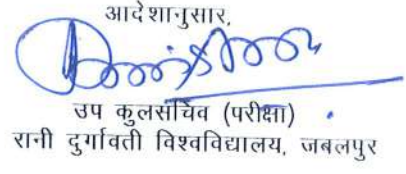 आदेशानुसार,
उप कुलसचिव (परीक्षा)
रानी दुर्गावती विश्वविद्यालय, जबलपुर